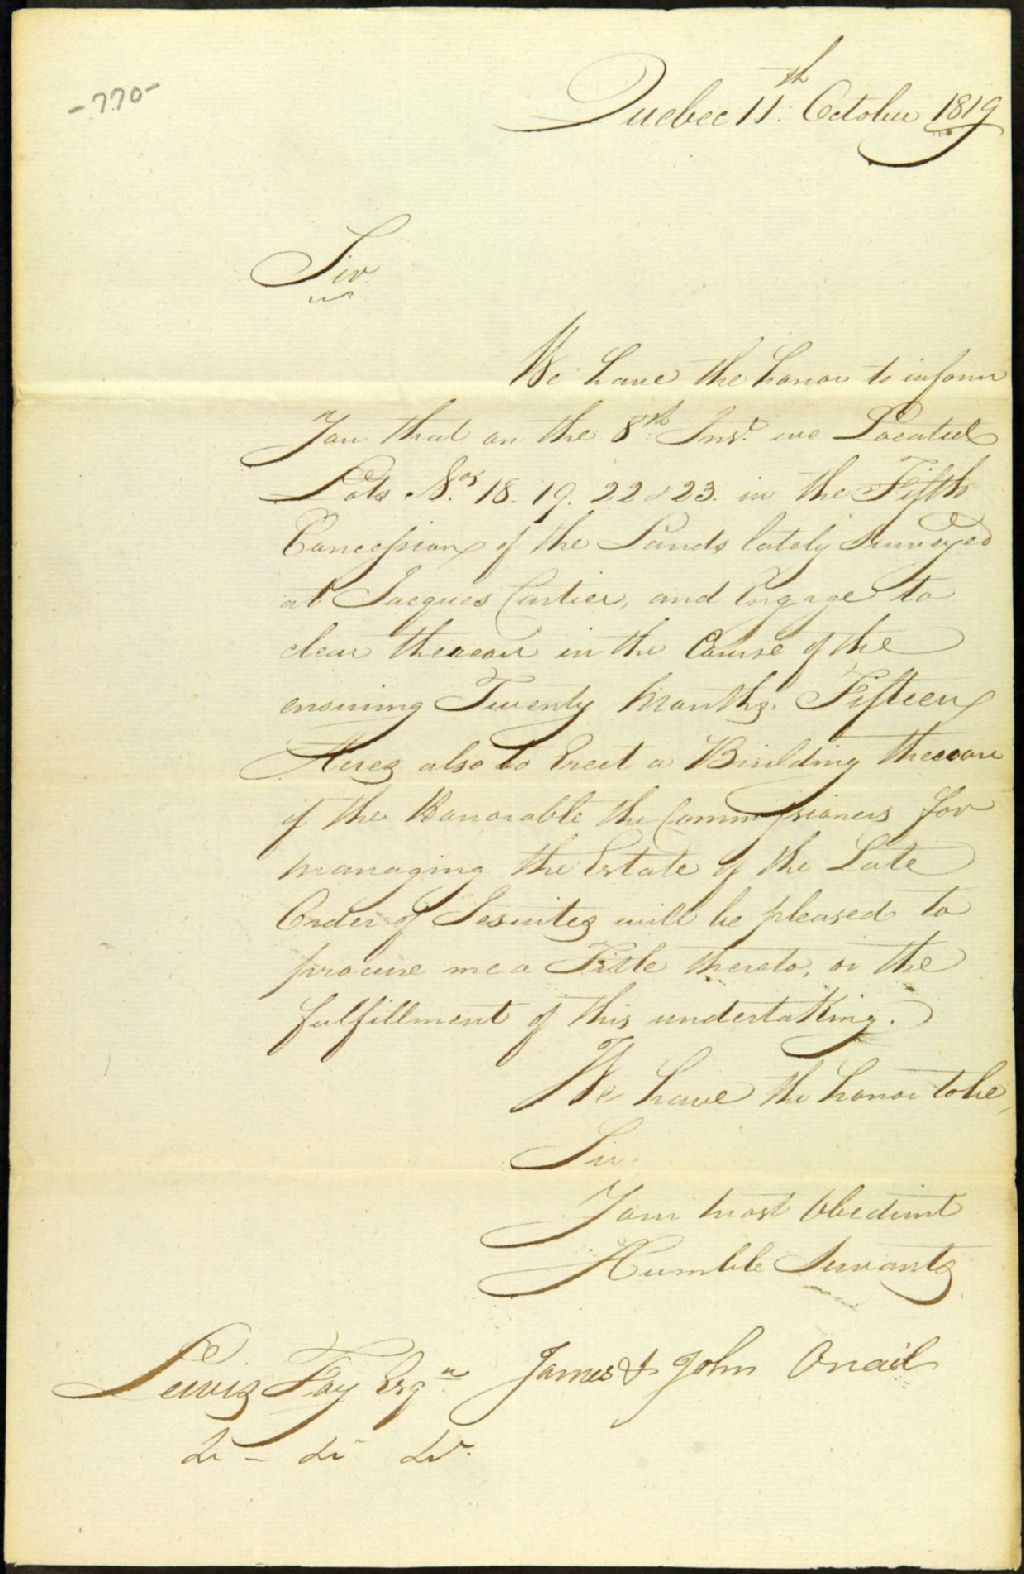 -770-
Quebec 11th October 1819
Sir
We have the honor to inform
You that on the 8th Inst. we Located
Lots Nos. 18. 19. 22 & 23. in the Fifth
Concession of the Lands lately Surveyed
at Jacques Cartier, and Engage to
clear thereon in the Course of the
ensuing Twenty Months. Fifteen
Acres also to Erect a Building thereon
if the Honorable the Commissioners for
managing the Estate of the Late
Order of Jesuites will be pleased to
procure me a Title thereto, on the
fulfillment of this undertaking.
We have the honor to be,
Sir
Your most Obedient
Humble Servants
James & John Onail
Lewis Foy Esqr.